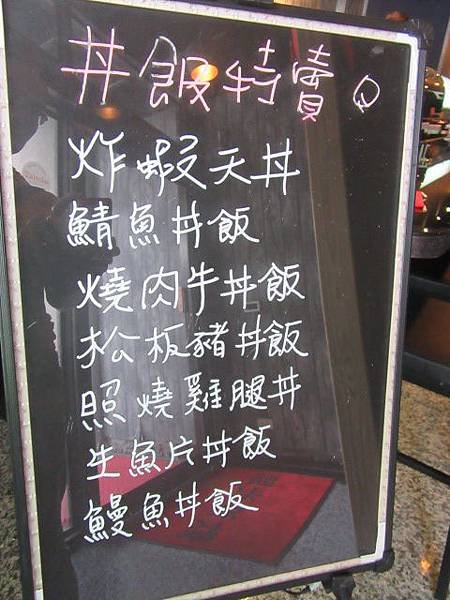 丼飯特賣。
炸蝦天丼
鯖魚丼飯
燒肉牛丼飯
松板豬丼飯
照燒雞腿丼
生魚片丼飯
鰻魚丼飯